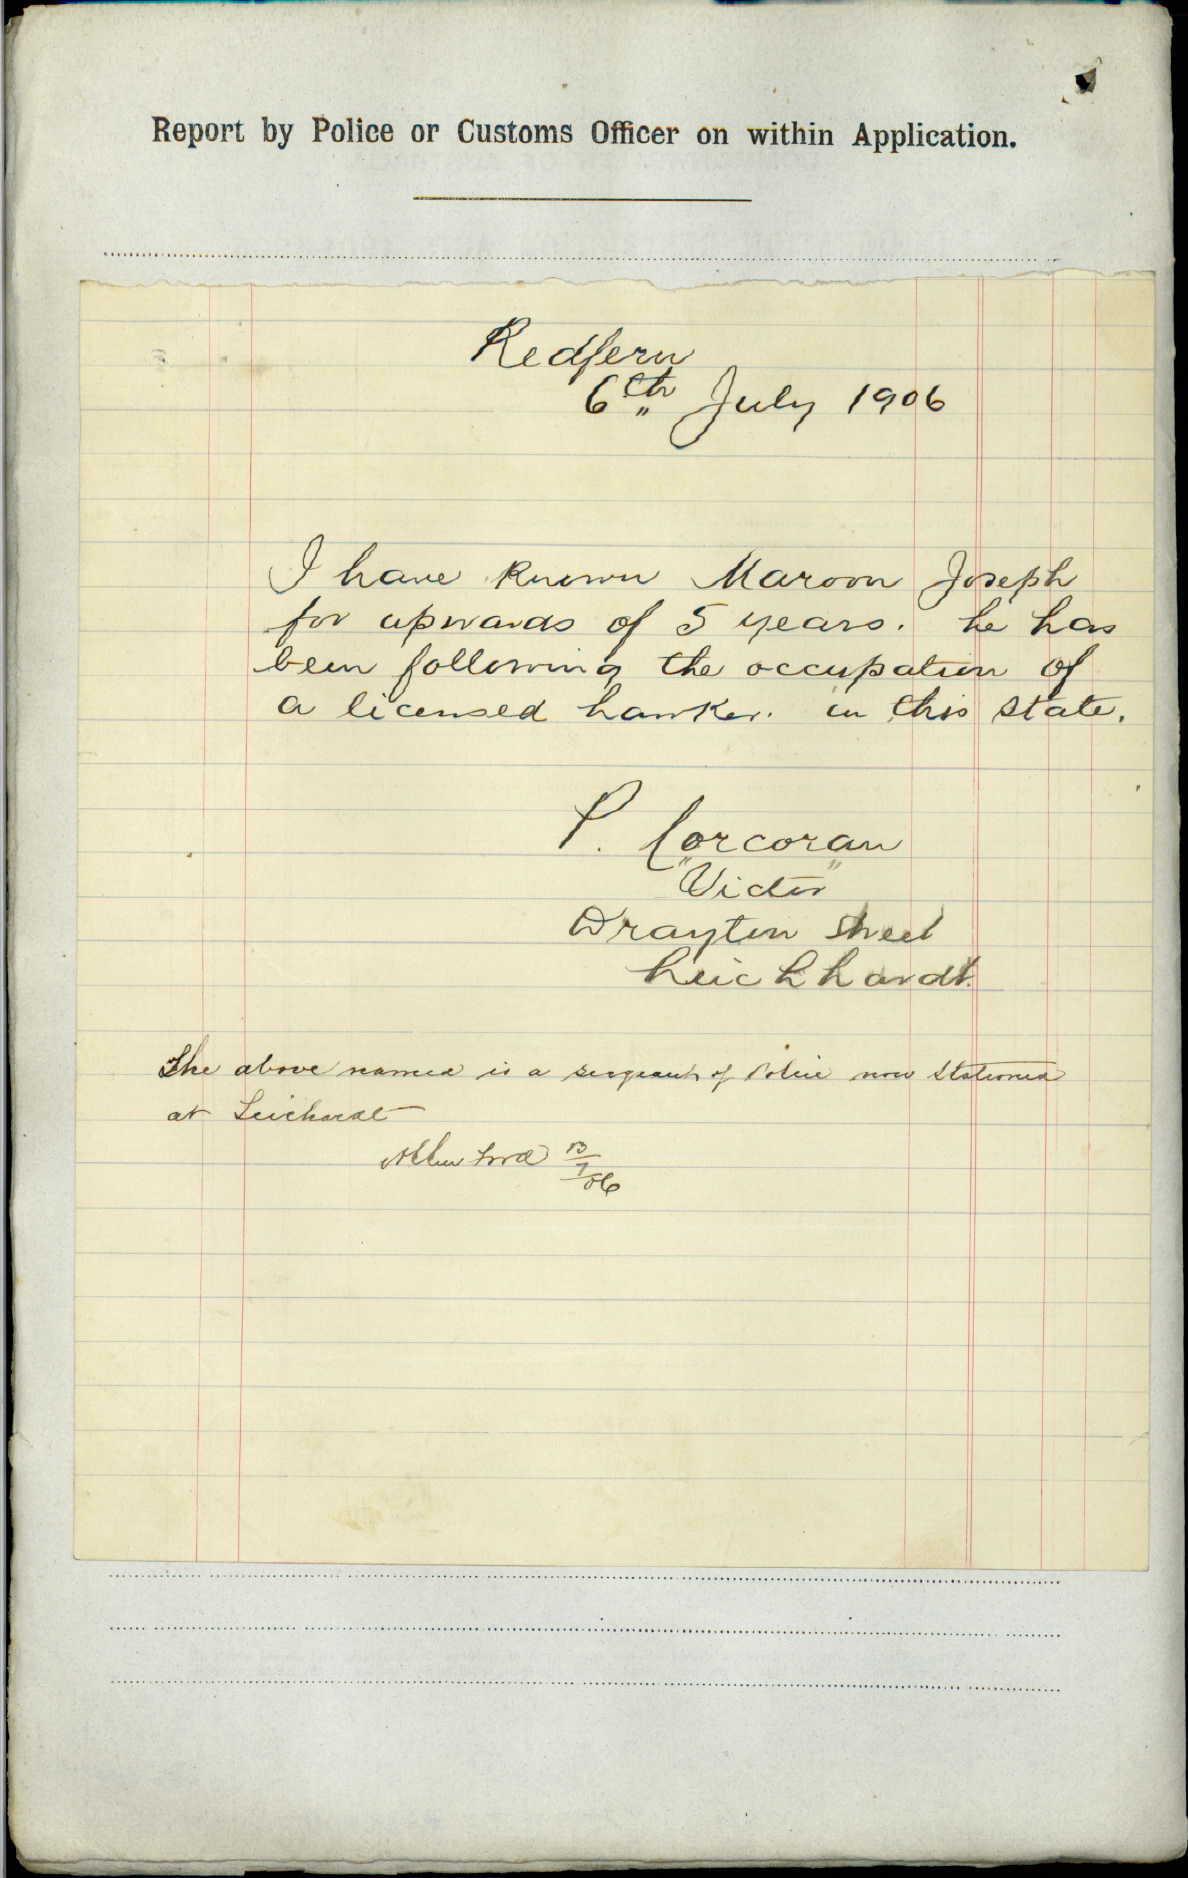 Report by Police or Customs Officer on within Application.
Redfern
6th July 1906
I have known Maroon Joseph
for upwards of 5 years. he has
been following the occupation of
a licensed hawker. in this state.
P. Corcoran
"Victor"
Drayton Street
Leichhardt.
The above named is a sergeant of Police now stationed
at Leichardt
13/7/06